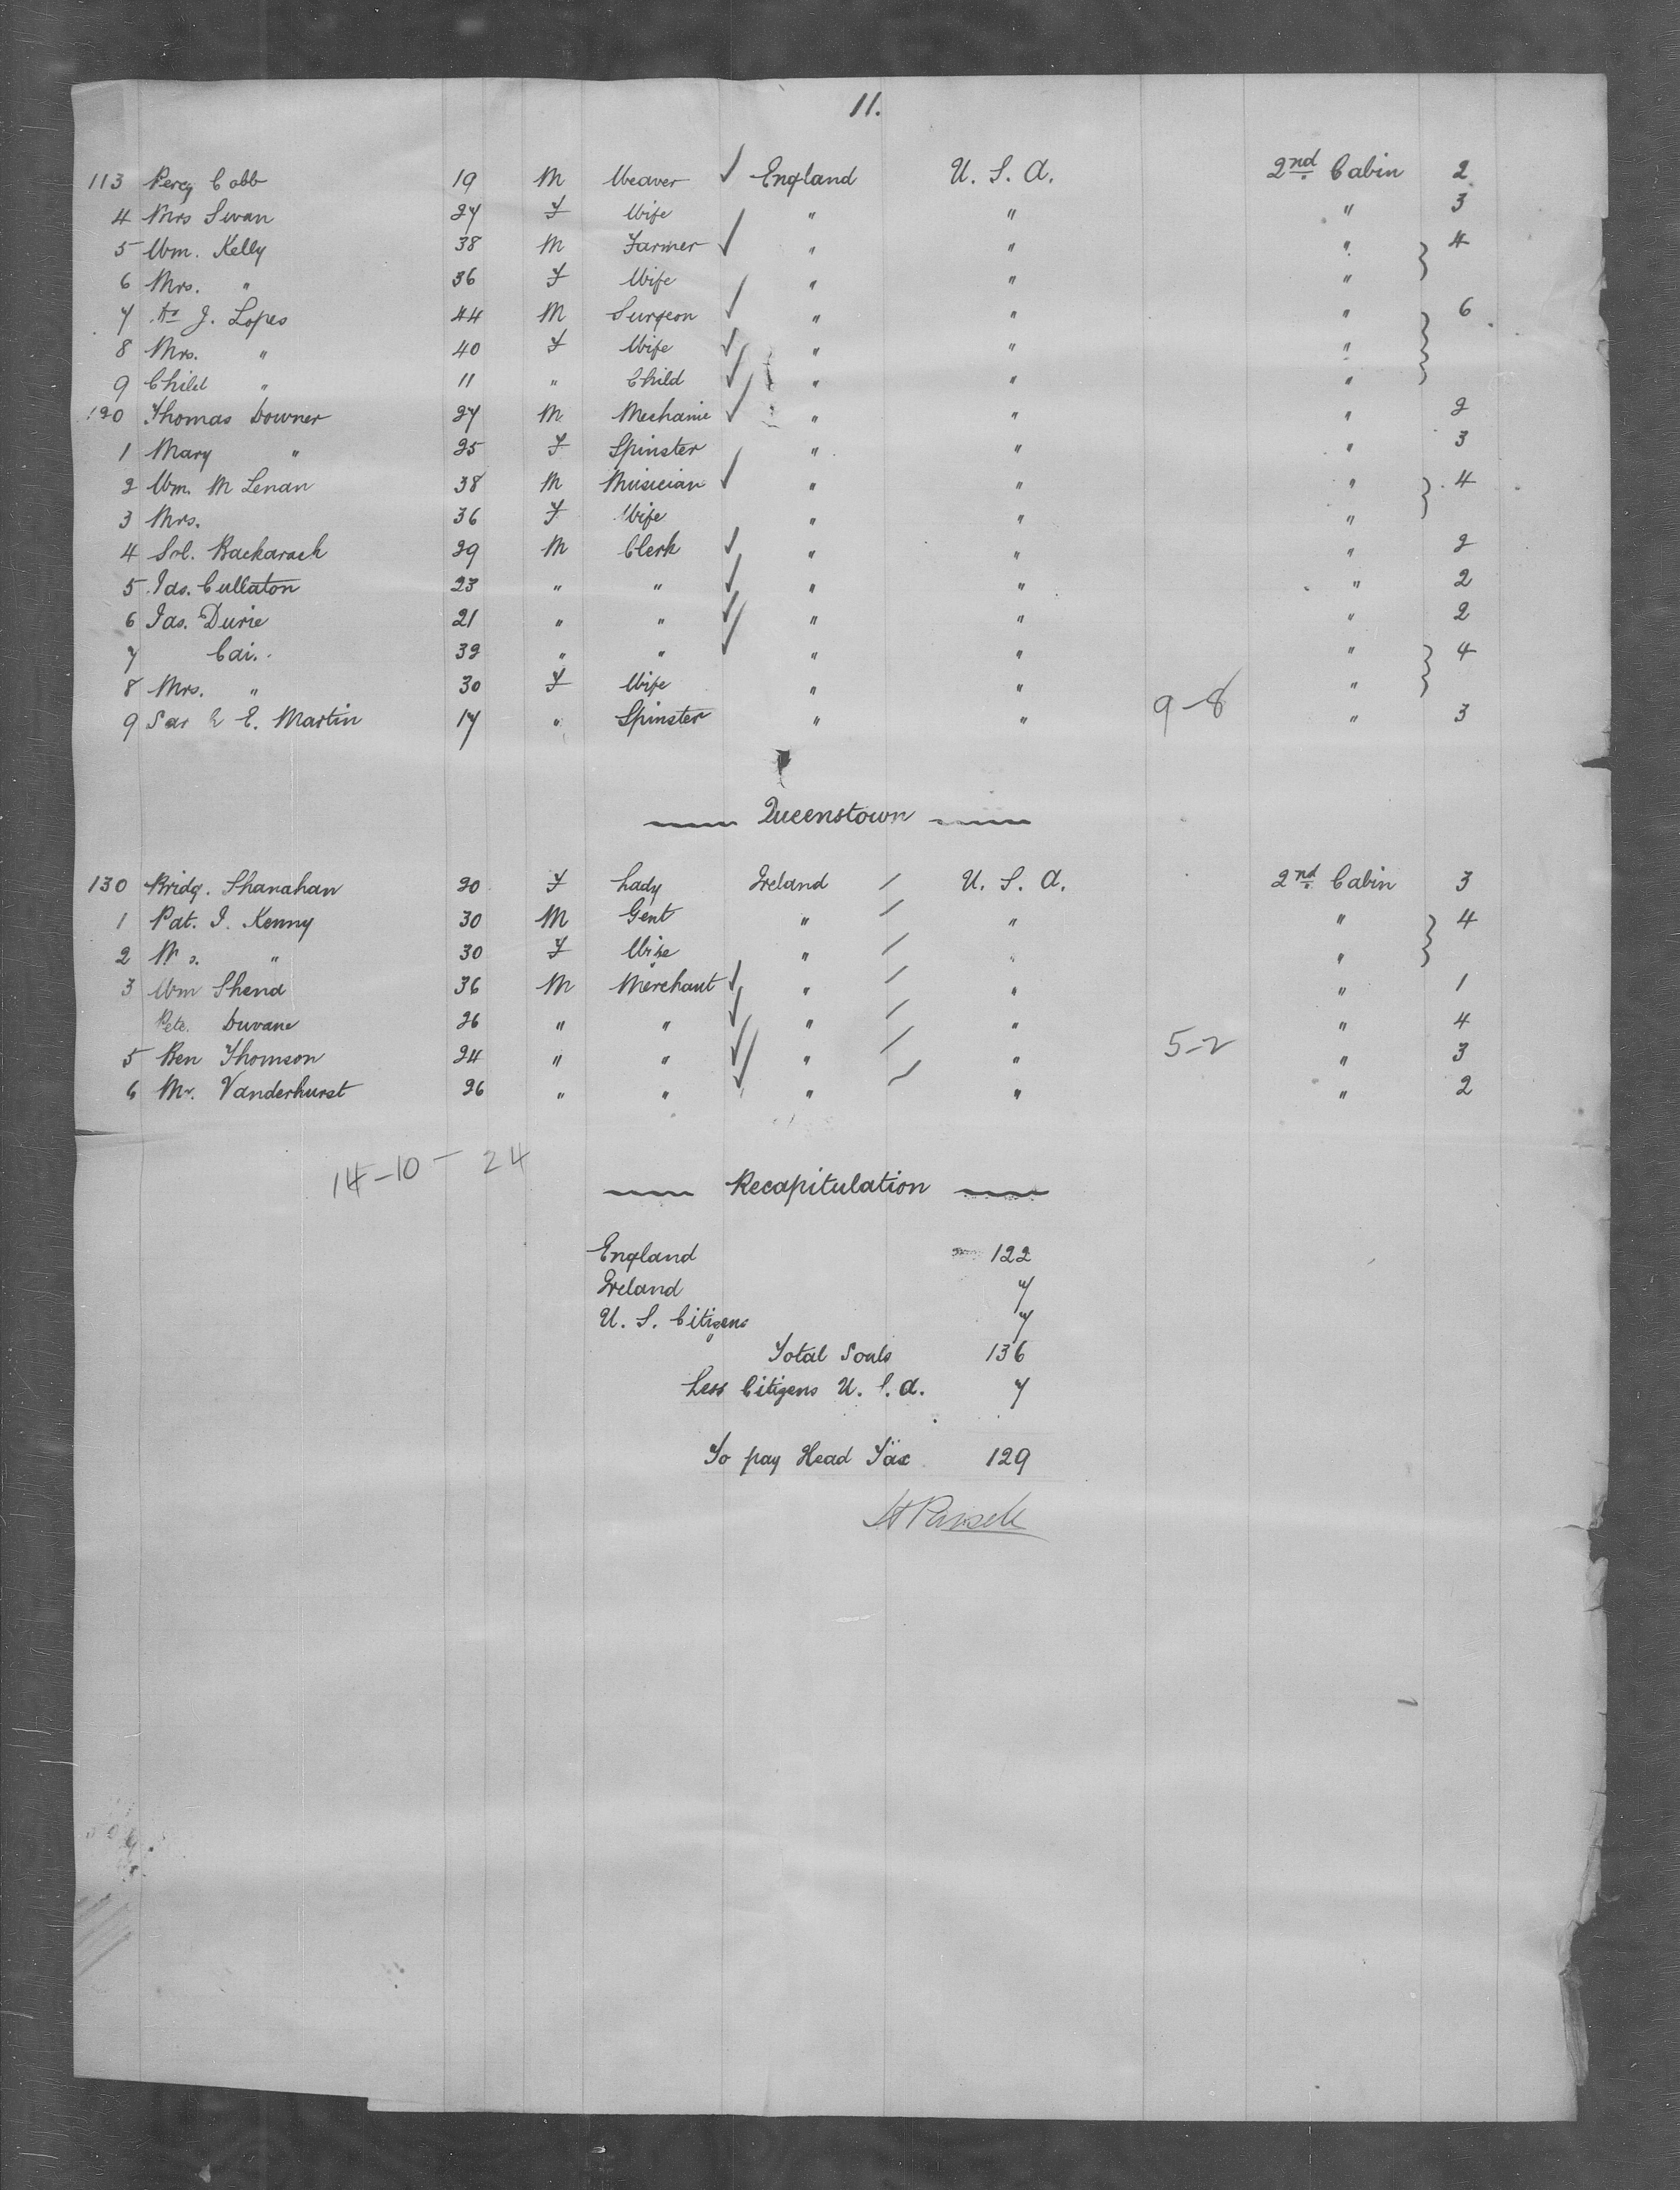 11.
113 Percy Cobb 19 M Weaver ✓ England U. S. A. 2nd. Cabin 2
4 Mrs Swan 27 F Wife " " " 3
5 Wm. Kelly 38 M Farmer ✓ " " " } 4
6 Mrs. " 36 F Wife " " "
7 J. Lopes 44 M Surgeon ✓ " " " } 6
8 Mrs. " 40 F Wife ✓ " " "
9 Child " 11 " Child ✓ " " "
120 Thomas Downer 27 M Mechanic ✓ " " " 2
1 Mary " 25 F Spinster " " " 3
2 Wm. M Lenan 38 M Musician ✓ " " " } 4
3 Mrs. 36 F Wife " " "
4 Sol. Backarach 29 M Clerk ✓ " " " 2
5 Jas. Cullaton 23 " " ✓ " " " 2
6 Jas. Durie 21 " " ✓ " " " 2
7 Cai. 32 " " ✓ " " " } 4
8 Mrs. " 30 F Wife " " "
9 Sar E. Martin 17 " Spinster " " 9-8 " 3
Queenstown
130 Bridg. Shanahan 20 F Lady Ireland / U. S. A. 2nd. Cabin 3
1 Pat. J. Kenny 30 M Gent " / " " } 4
2 M s. " 30 F Wife " / " "
3 Wm Shend 36 M Merchant ✓ " / " " 1
Pete. Duvane 26 " " ✓ " / " " 4
5 Ben Thomson 24 " " ✓ " / " 5-2 " 3
6 Mr. Vanderhurst 26 " " ✓ " / " " 2
14-10-24
Recapitulation
England 122
Ireland 7
U. S. Citizens 7
Total Souls 136
Less Citizens U. S. A. 7
To pay Head Tax 129